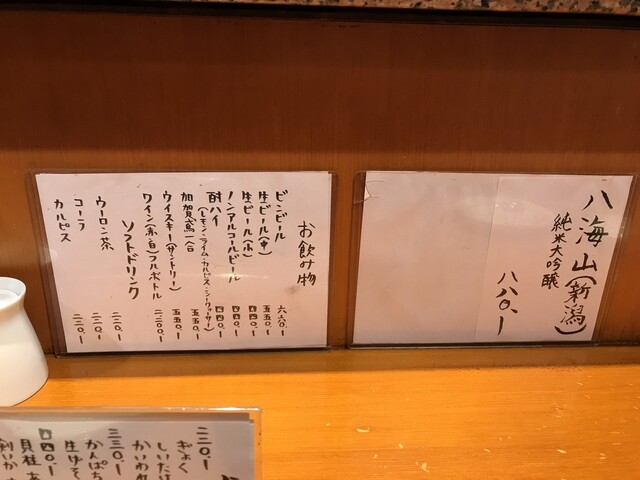 八海山(新潟)
純米大吟醸
八八〇.ー
お飲み物
ビンビール 六六〇.ー
生ビール(中) 五五〇.ー
生ビール(小) 四四〇.ー
ノンアルコールビール 四四〇.ー
酎ハイ 四四〇.ー
(レモン・ライム・カルピス・シークァーサー)
加賀鳶一合 五五〇.ー
ウイスキー(サントリー) 五五〇.ー
ワイン(赤・白)フルボトル 二二〇〇.ー
ソフトドリンク
ウーロン茶 二二〇.ー
コーラ 二二〇.ー
カルピス 二二〇.ー
二二〇.ー
ぎょく
しいたけ
かいわれ
三三〇.ー
かんぱち
生げそ
四四〇.ー
貝柱